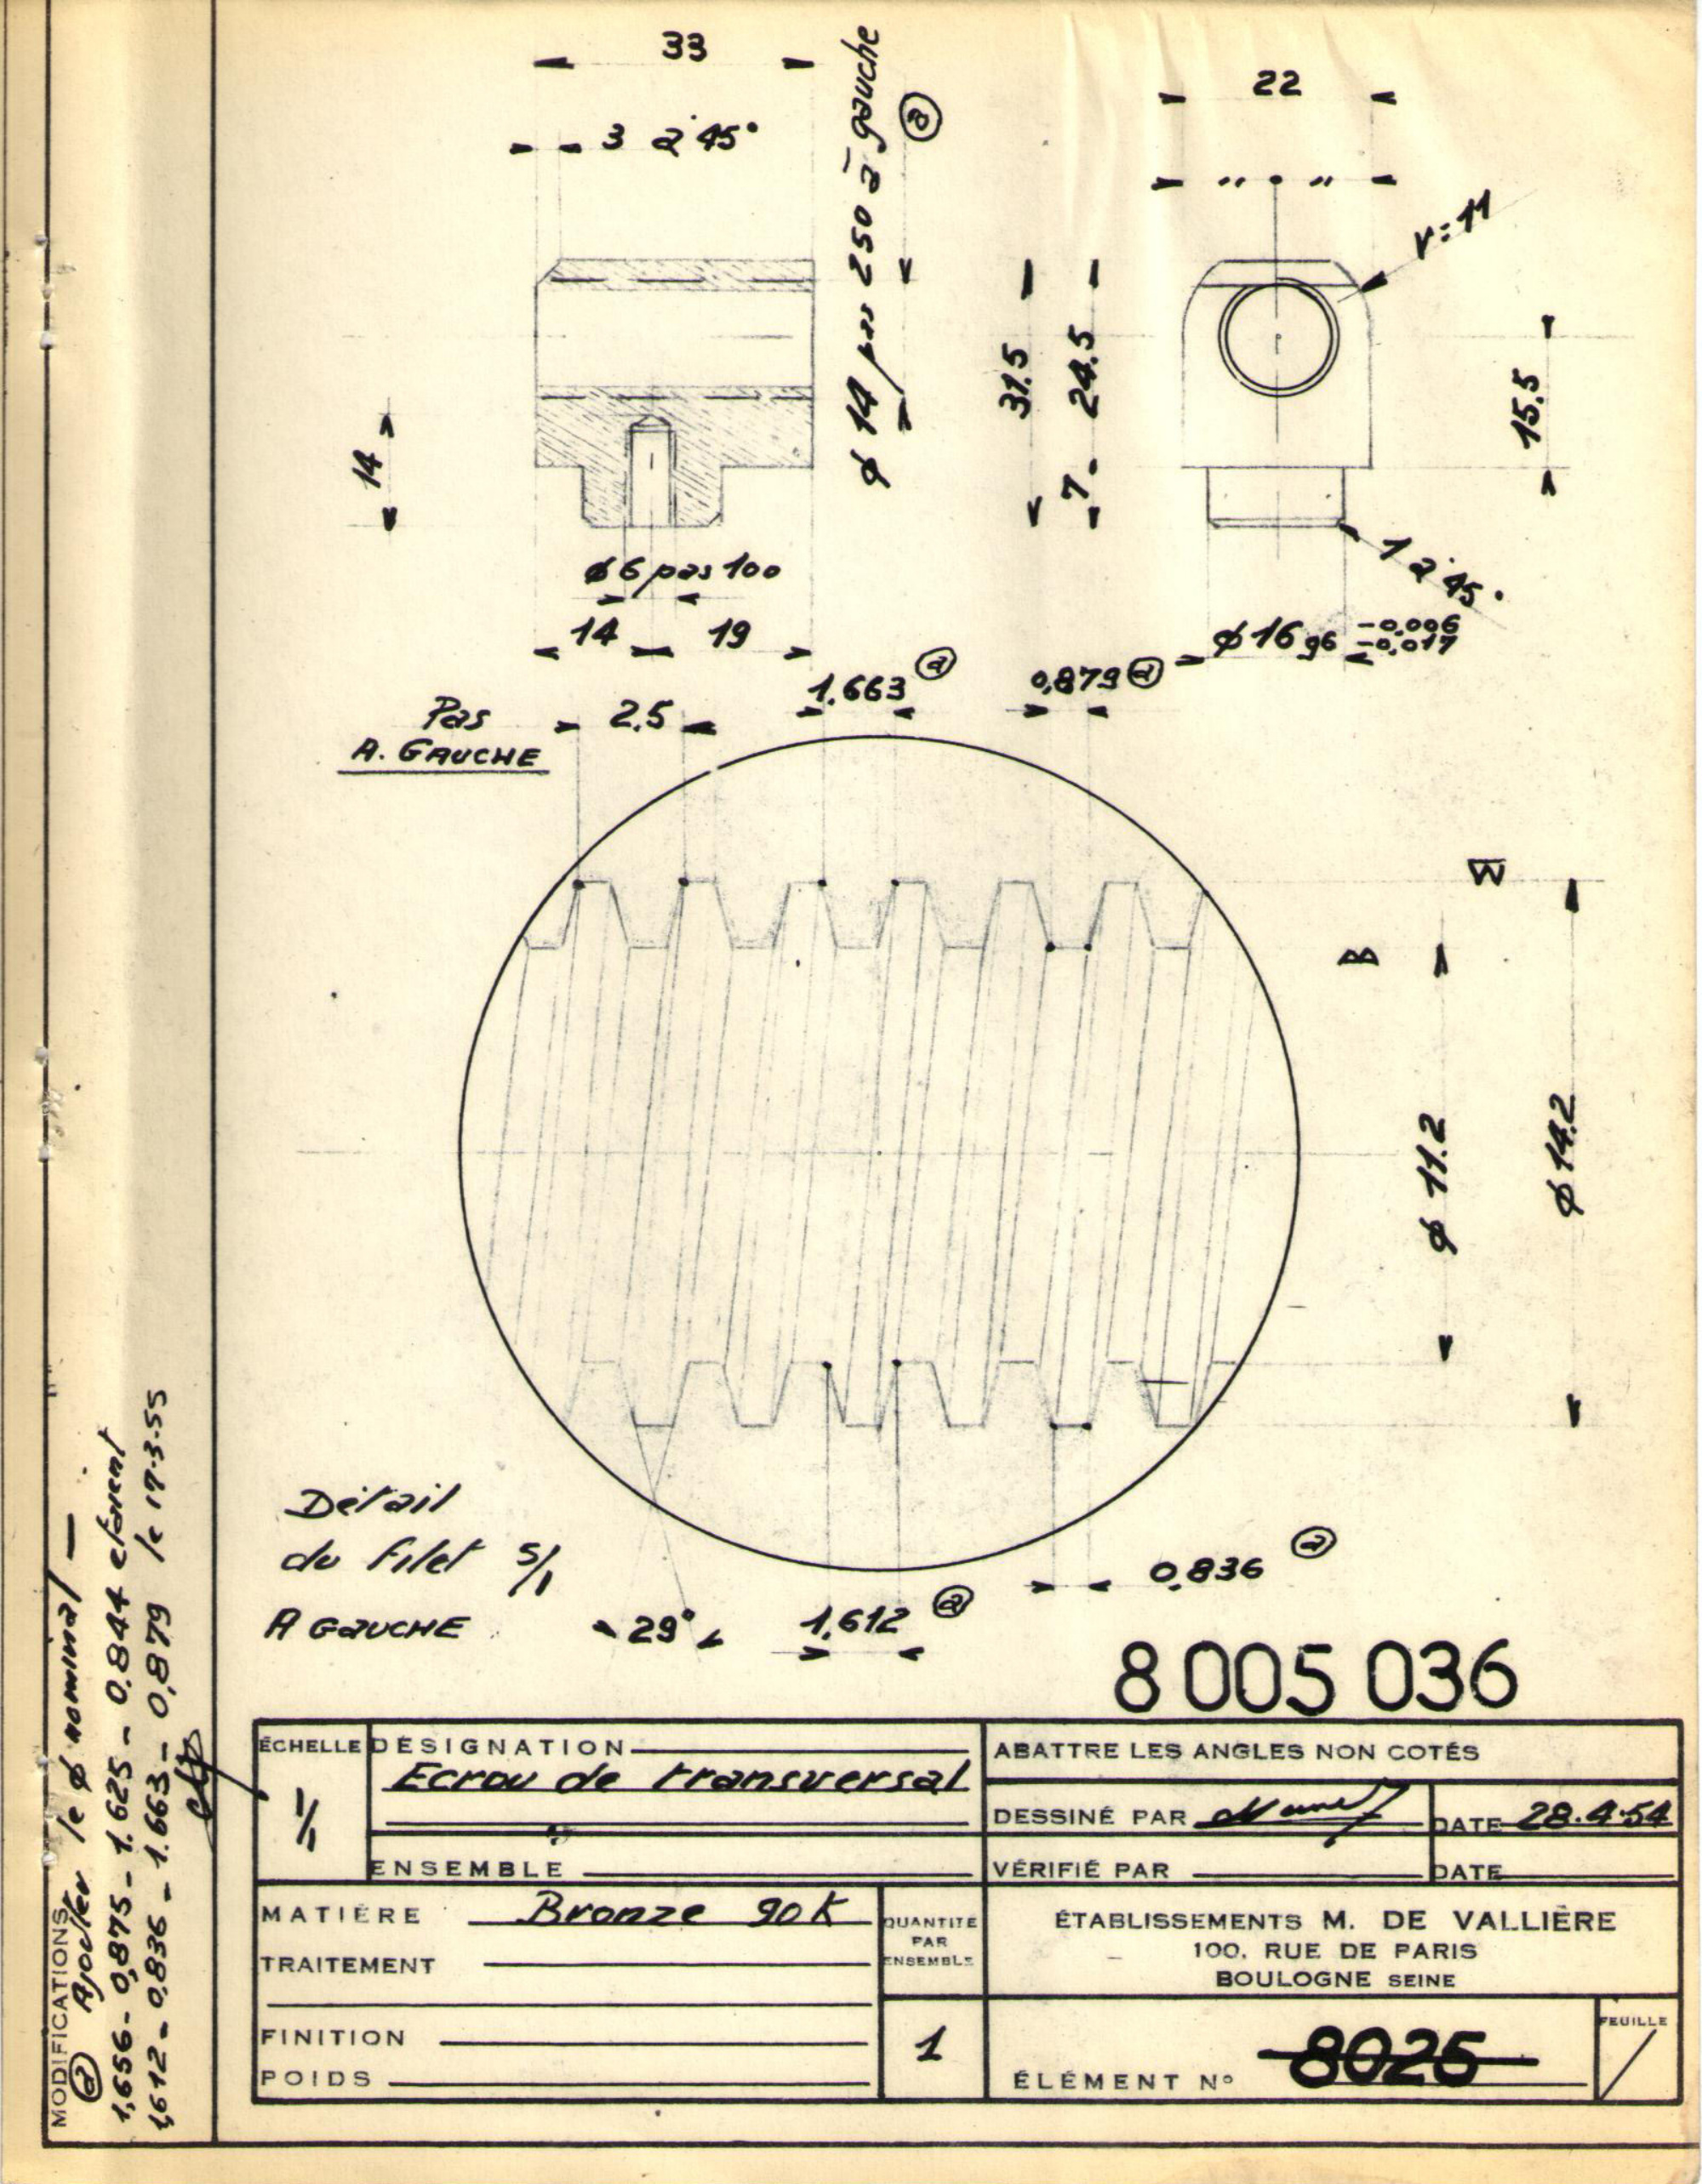 33
3 à 45°
ø 14 pas 250 à gauche
a
22
" • "
r=11
31.5
24.5
7.
15.5
14
ø 6 pas 100
14 19
1 à 45°
ø 16 g6 -0,006
-0,017
Pas
A. GAUCHE
2.5
1.663 a
0,879 a
ø 11.2
ø 14.2
Détail
du filet 5/1
A GAUCHE
29°
1,612 a
0,836 a
8 005 036
MODIFICATIONS
a Ajouter le ø nominal —
1,656 - 0,875 - 1.625 - 0.844 étaient
1,612 - 0,836 - 1.663 - 0,879 le 17-3-55
ÉCHELLE
1/1
DÉSIGNATION
Ecrou de transversal
ENSEMBLE
ABATTRE LES ANGLES NON COTÉS
DESSINÉ PAR
DATE 28.4.54
VÉRIFIÉ PAR
DATE
MATIÈRE Bronze 90K
TRAITEMENT
FINITION
POIDS
QUANTITÉ
PAR
ENSEMBLE
1
ÉTABLISSEMENTS M. DE VALLIÈRE
100, RUE DE PARIS
BOULOGNE SEINE
ÉLÉMENT N° 8025
FEUILLE